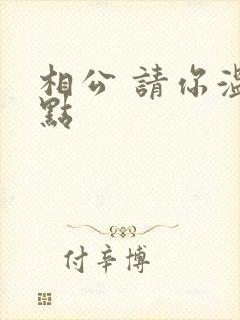 相公 請你溫
點
付辛博